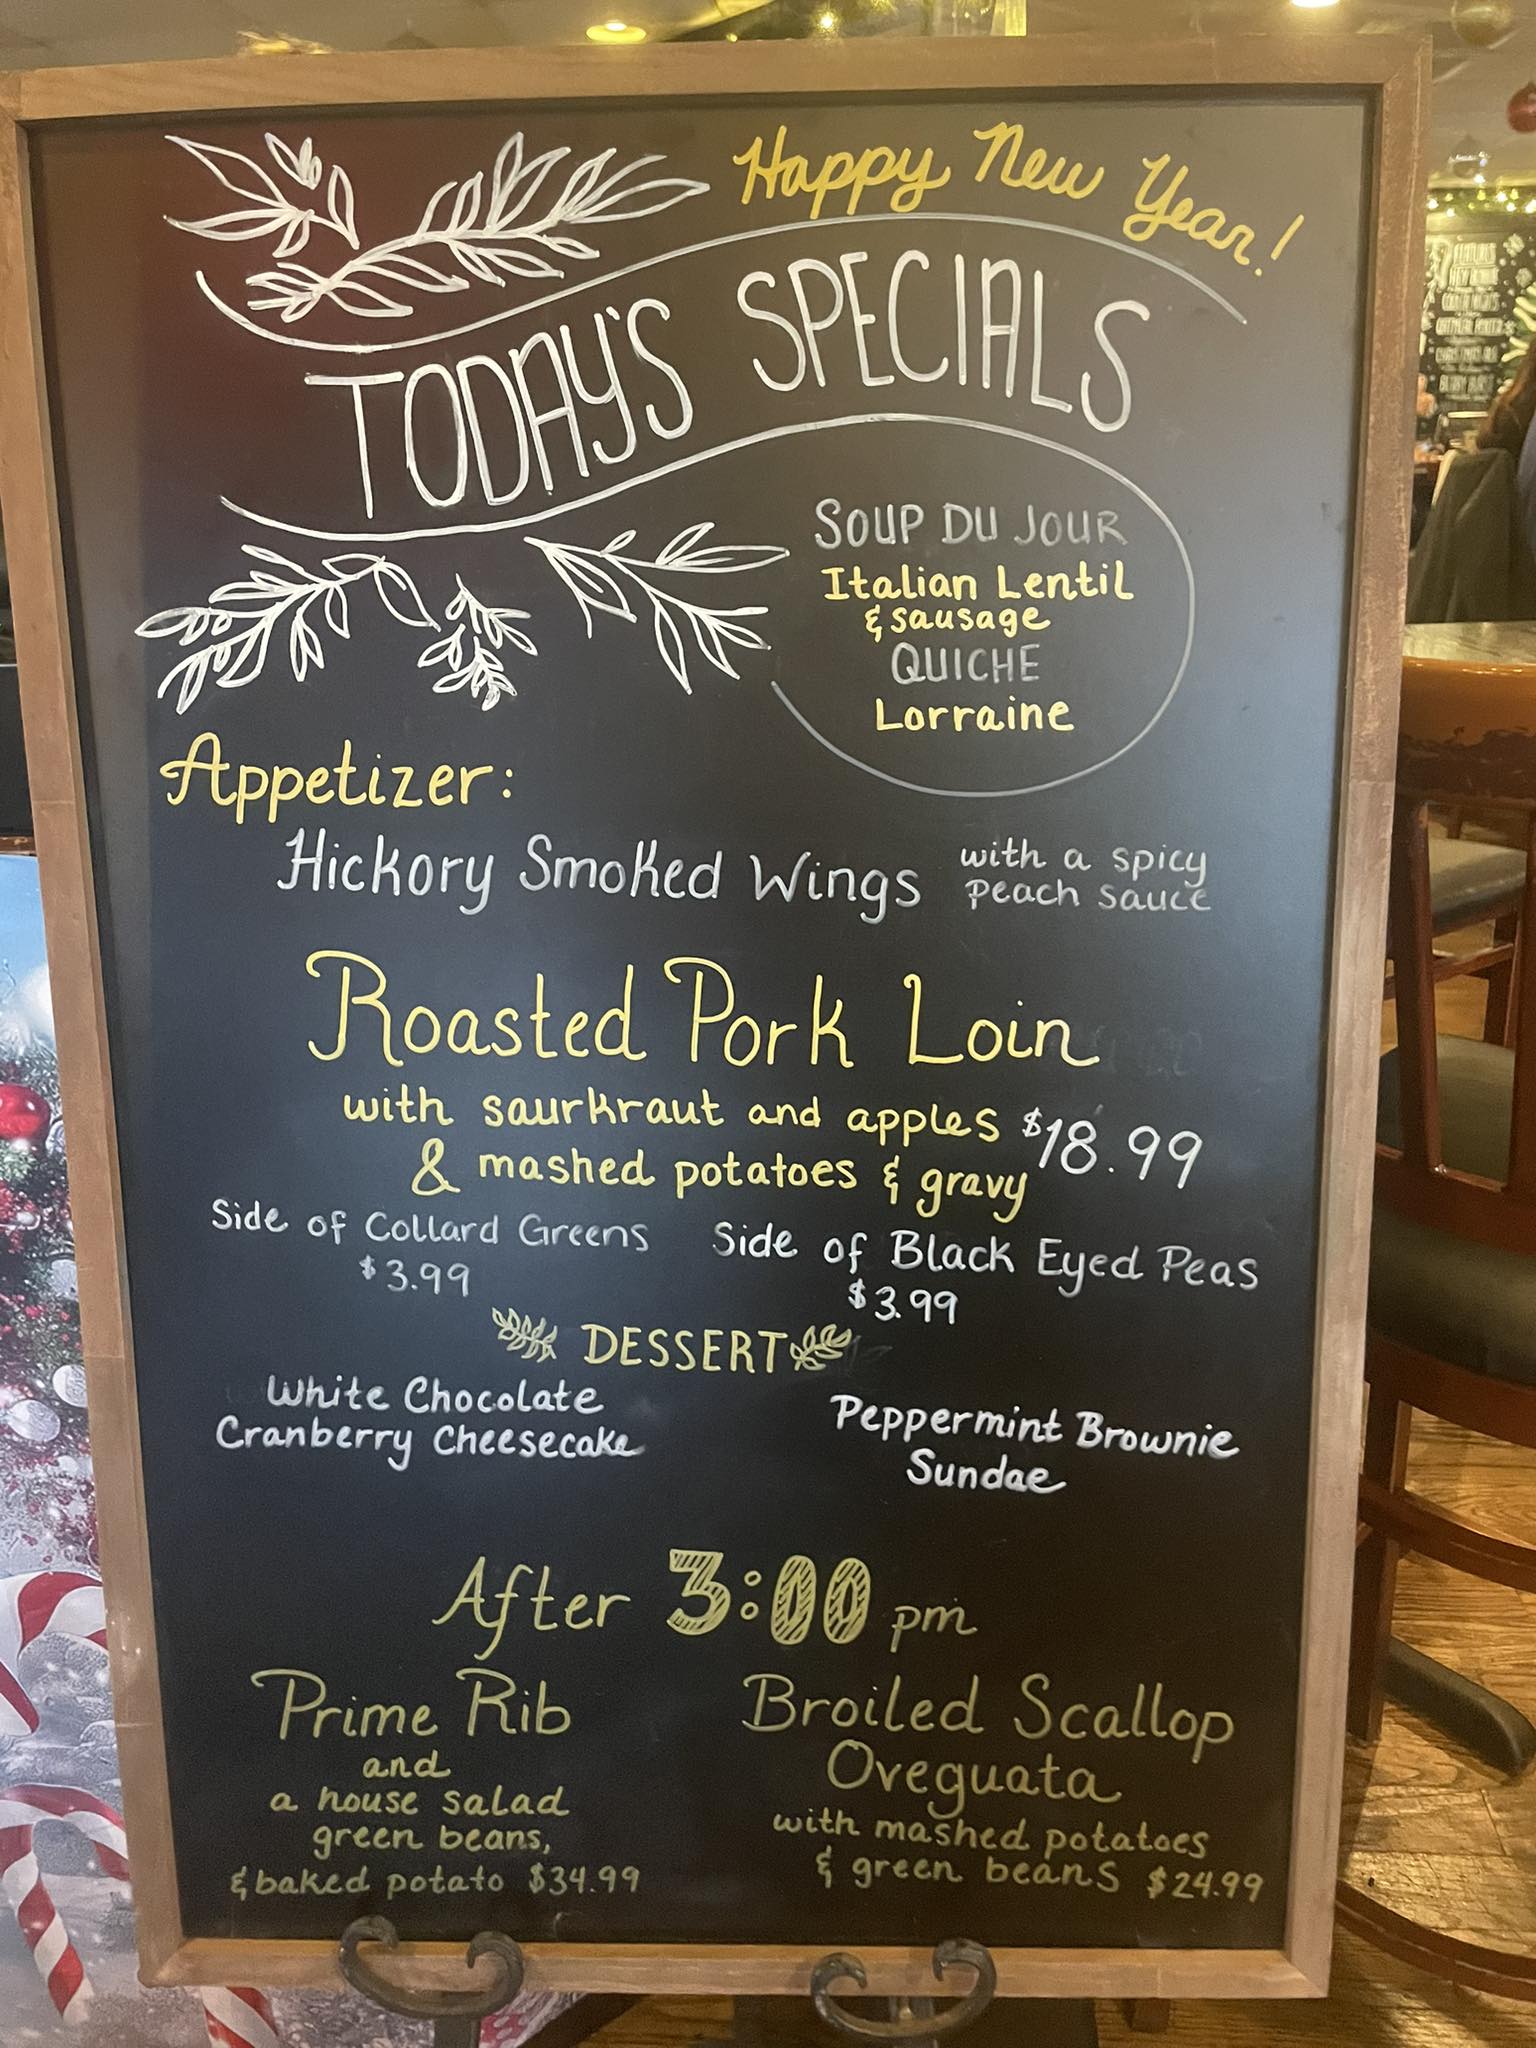 Happy New Year!
TODAY'S SPECIALS
SOUP DU JOUR
Italian Lentil
& sausage
QUICHE
Lorraine
Appetizer:
Hickory Smoked Wings with a spicy
peach sauce
Roasted Pork Loin
with saurkraut and apples $18.99
& mashed potatoes & gravy
Side of Collard Greens
$3.99
Side of Black Eyed Peas
$3.99
DESSERT
White Chocolate
Cranberry Cheesecake
Peppermint Brownie
Sundae
After 3:00 pm
Prime Rib
and
a house salad
green beans,
& baked potato $34.99
Broiled Scallop
Oveguata
with mashed potatoes
& green beans $24.99